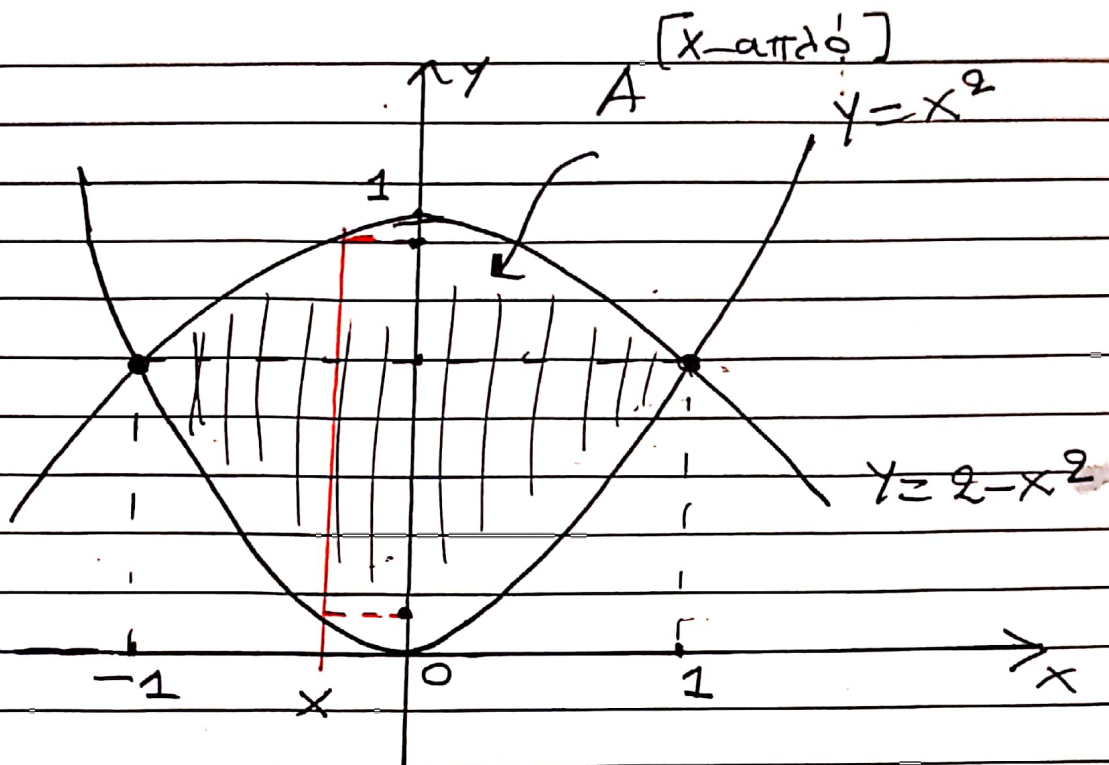 [x-απλό]
A
y
y=x²
1
y=2-x²
-1
x
0
1
x